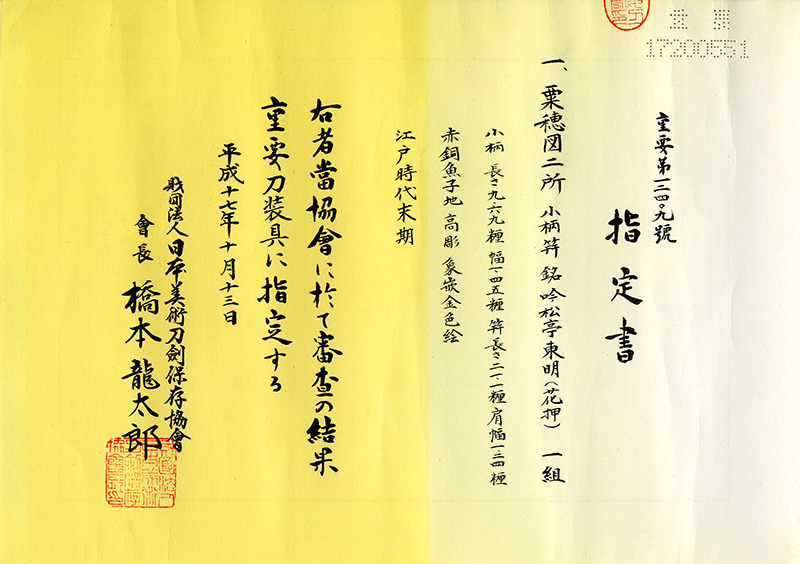 17200551
重要第一二四〇九號
指定書
一、粟穂図二所 小柄笄 銘 吟松亭東明(花押) 一組
小柄 長さ九・六九糎 幅一・四五糎 笄長さ二一・一糎 肩幅一・二四糎
赤銅魚子地 高彫 象嵌金色絵
江戸時代末期
右者當協會に於て審査の結果
重要刀装具に指定する
平成十七年十月十三日
財団法人日本美術刀劍保存協會
會長 橋本龍太郎